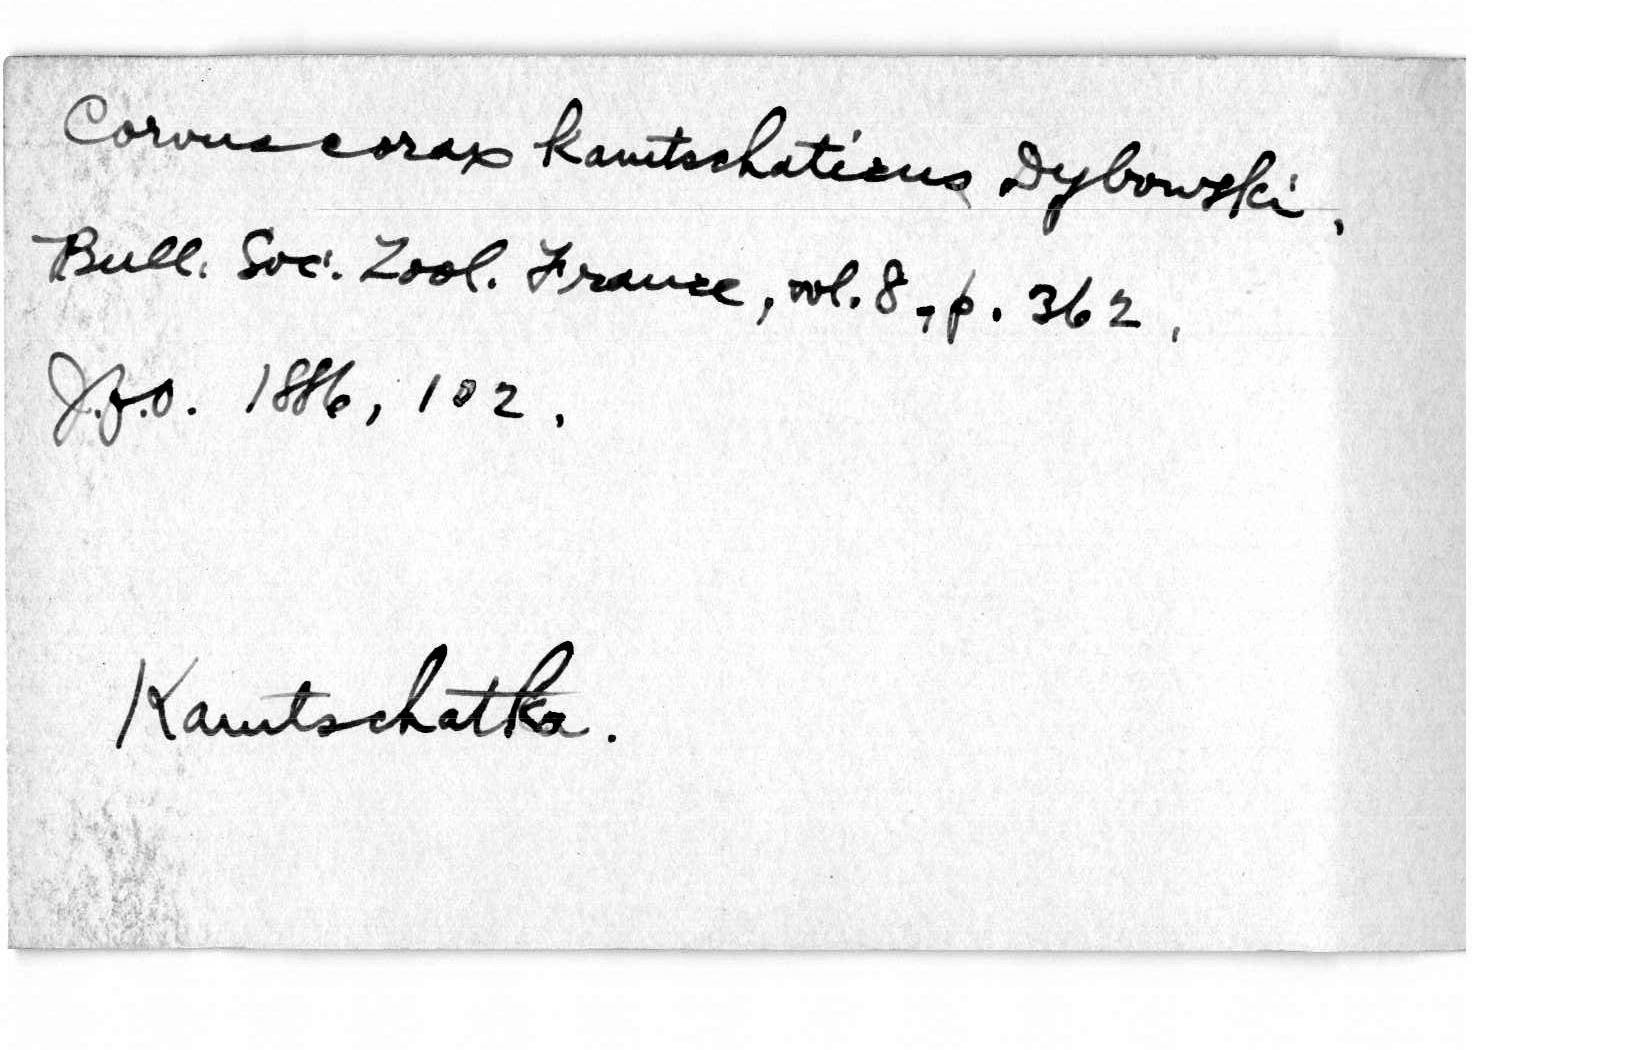 Corvus corax kamtschaticus Dybowski,
Bull. Soc. Zool. France, vol. 8, p. 362,
J.f.O. 1886, 102,
Kamtschatka.